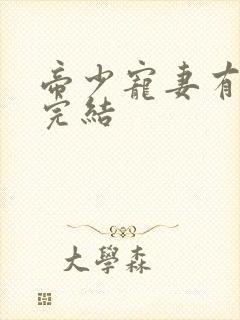 帝少寵妻有
完結
大學森